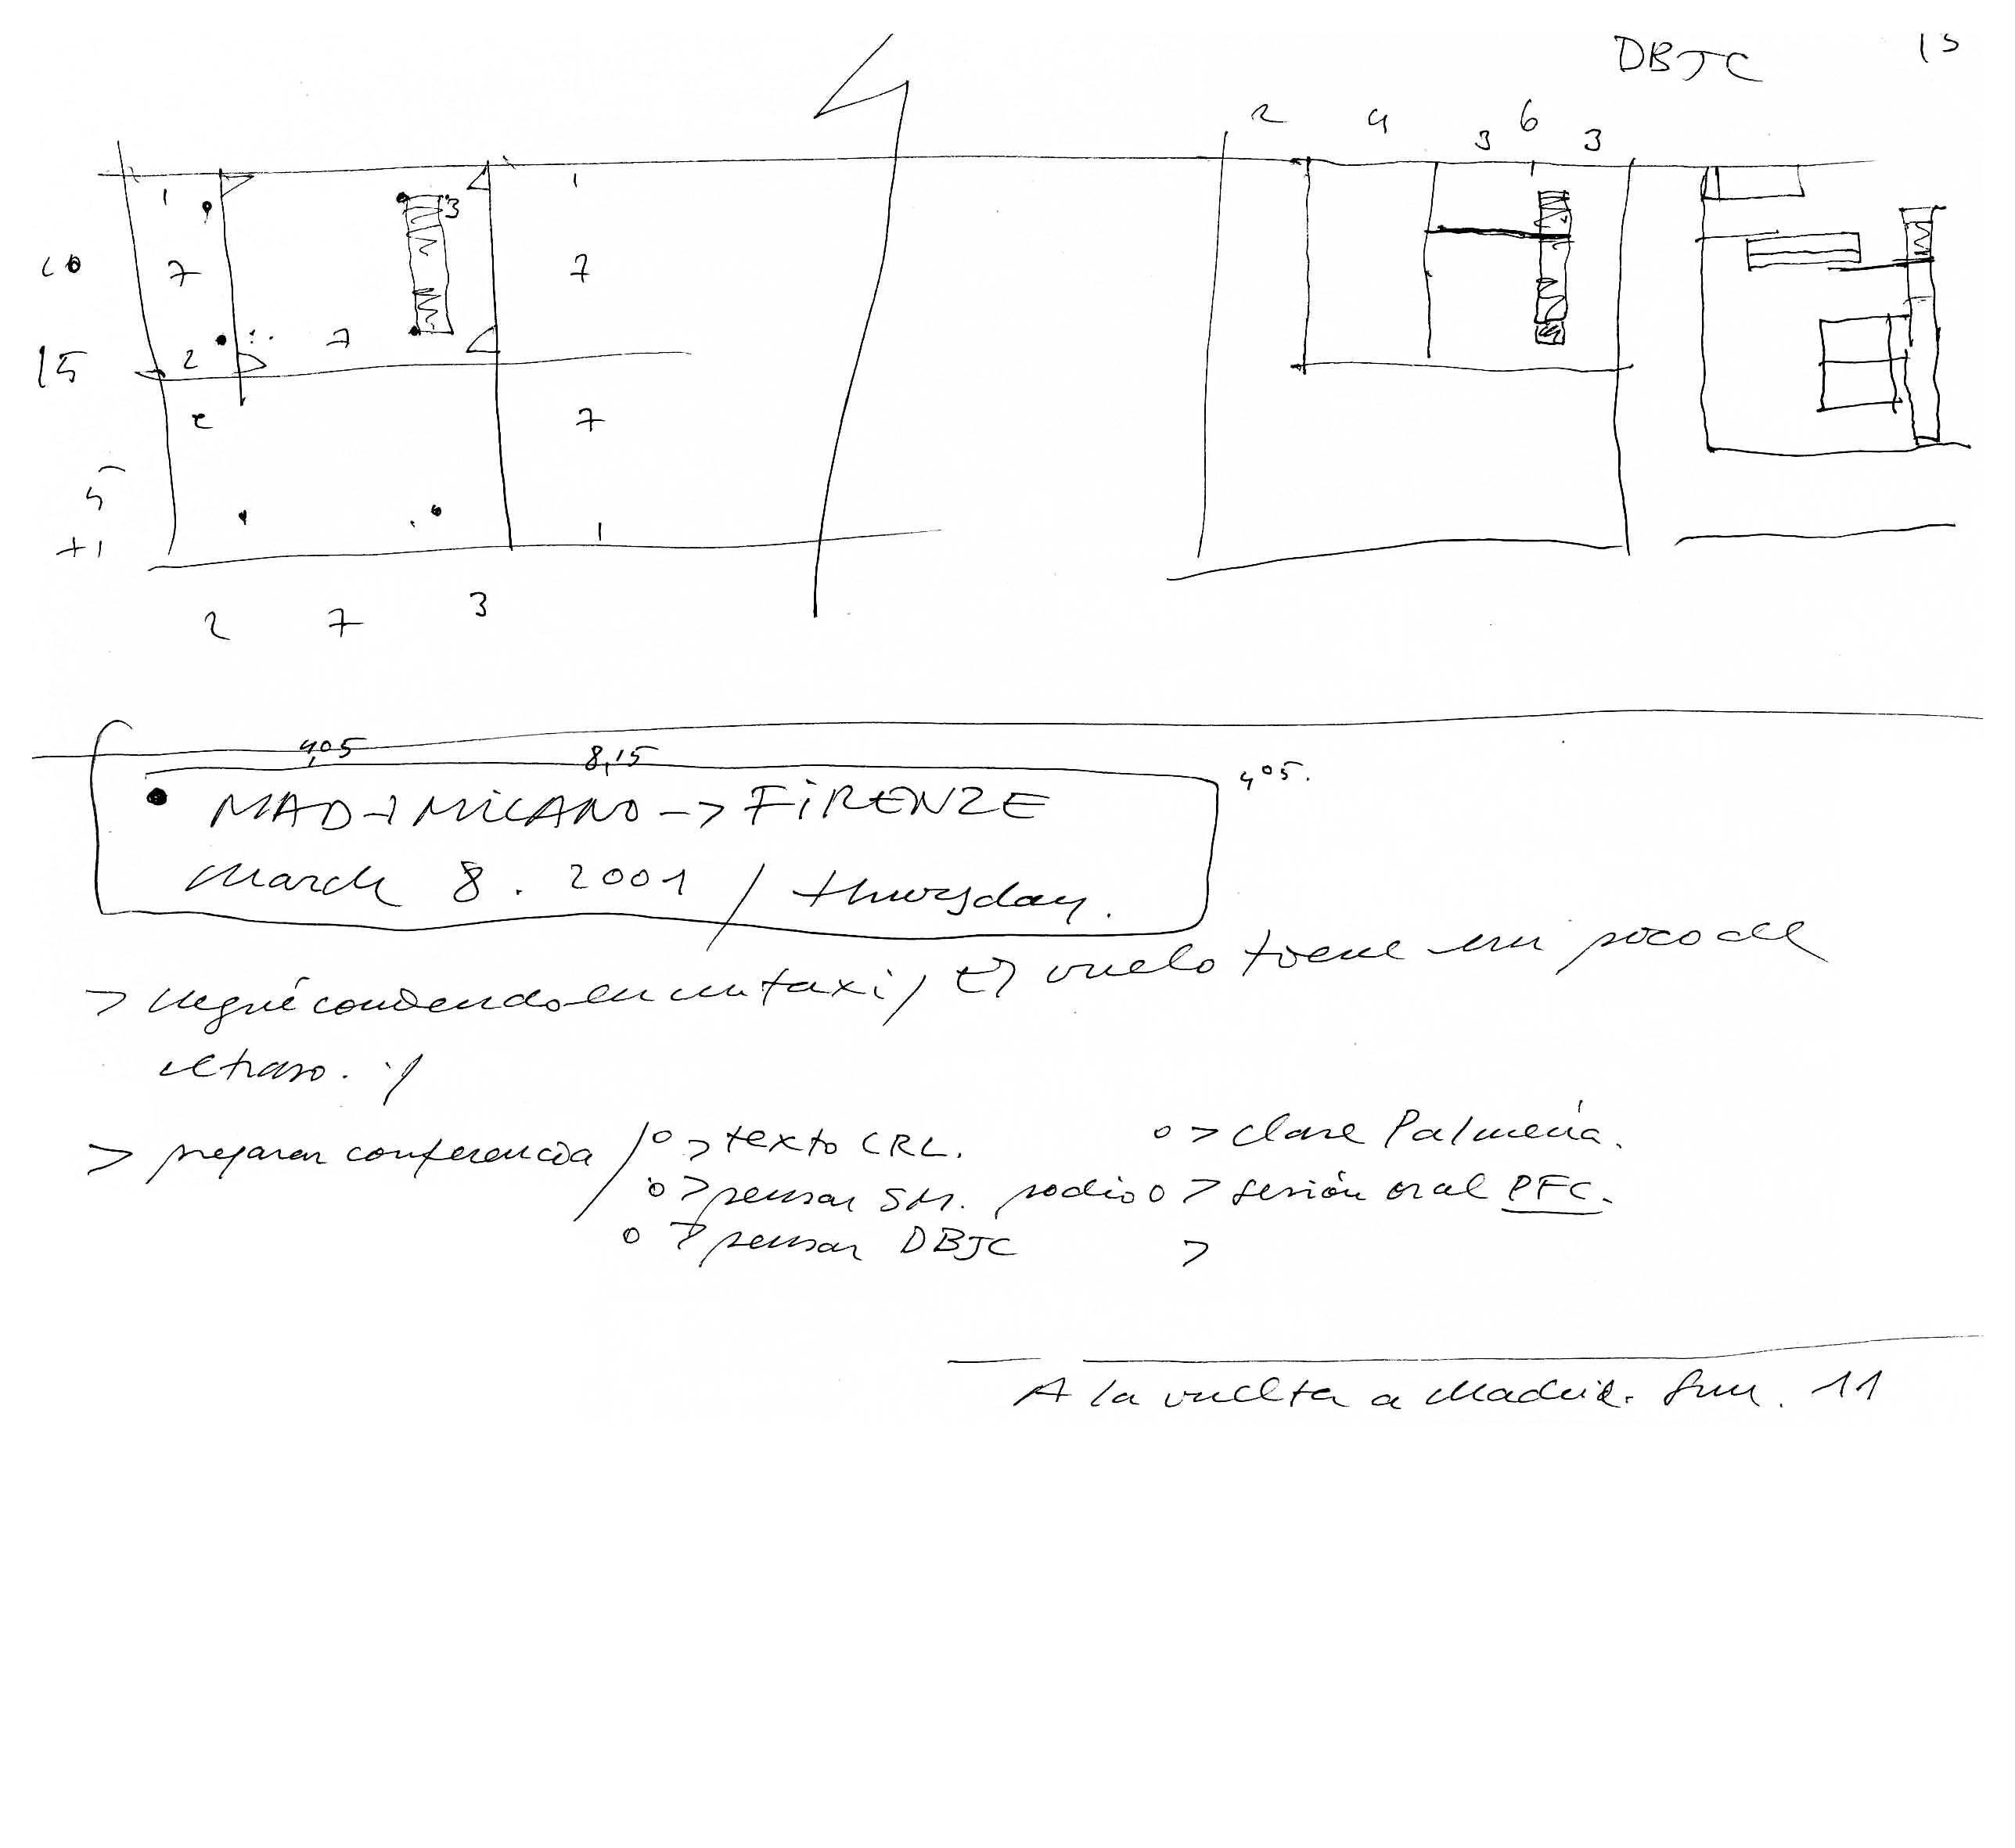 DBJC 15
2 4 6
3 3
1 3 1
10 7 7
15 2 7
2 7
5
+1 1
2 7 3
4,05 8,15 4,05.
• MAD → MILANO -> FIRENZE
March 8. 2001 / thursday.
> llegué corriendo en un taxi / El vuelo tiene un poco de
retraso. /
> preparar conferencia / o > texto CRL. o > clase Palmería.
o > pensar SM. podio o > sesión oral PFC.
o > pensar DBJC >
A la vuelta a Madrid. Sun. 11